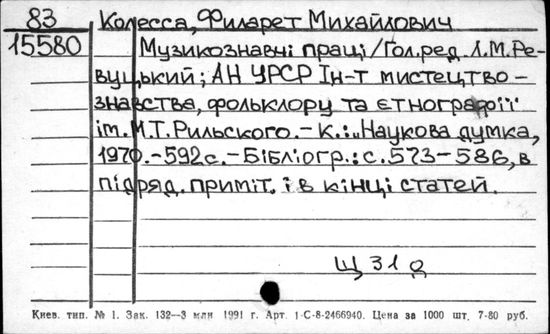 83 Колесса, Филарет Михайлович
15580 Музикознавчі праці/Гол.ред Л.М.Ре-
вуцький; АН УРСР Ін-т мистецтво-
знавства, фольклору та етнографії
ім.М.Т.Рильского.-К.:„Наукова думка,
1970.-592с.-Бібліогр.:с.573-586, в
підряд. приміт. і в кінці статей.
Щ 31 д
Киев. тип. № 1. Зак. 132—3 млн 1991 г. Арт. 1-С-8-2466940. Цена за 1000 шт. 7-80 руб.